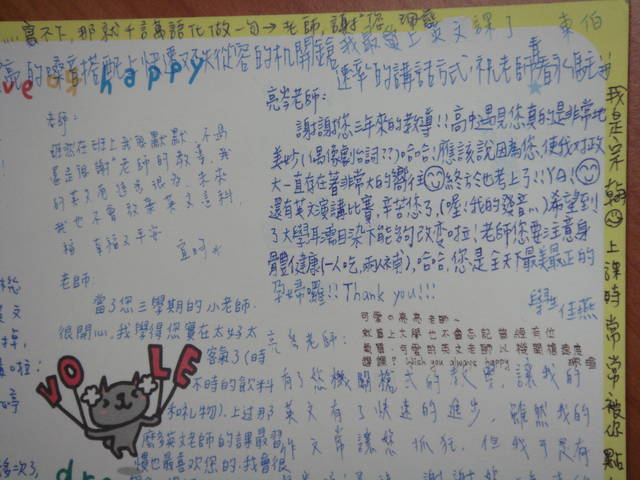 寫不下,那就千言萬語化做一句→老師,謝謝您
我最愛上英文課了
東伯
的嗓音搭配上快速又不失從容的机關鎗
速率的講話方式,祝老師青春永駐
happy
老師:
雖然在班上我很默默,不過
還是很謝謝老師的教導,我
的英文有進步很多,未來
我也不會放棄英文這科,
祝 幸福又平安
亮岑老師:
謝謝您三年來的教導!!高中遇見您真的是非常地
美妙(偶像劇台詞??)哈哈,應該說因為您,使我對政
大一直存在著非常大的嚮往 終於也考上了!!YA!!
還有英文演講比賽,辛苦您了,(喔!我的發音...)希望到
了大學耳濡目染下能夠改變啦,老師您要注意身
體健康(一人吃,兩人補),哈哈,您是全天下最美最正的
孕婦囉!!Thank you!!!
學生 佳燕
老師:
當了您三學期的小老師,
很開心,我覺得您實在太好太
客氣了(時
不時的飲料
和礼物),上過那
麼多英文老師的課最習
慣也最喜歡您的,我會很
VOLE
可愛の亮亮老師~
就算上大學也不會忘記曾經有位
可愛的英文老師以機關槍速度
Wish you always happy
亮岑老師:
有了您機關槍式的教學,讓我的
英文有了快速的進步,雖然我的
作文常讓您抓狂,但我可是有
我是宗翰 上課時常常被你點